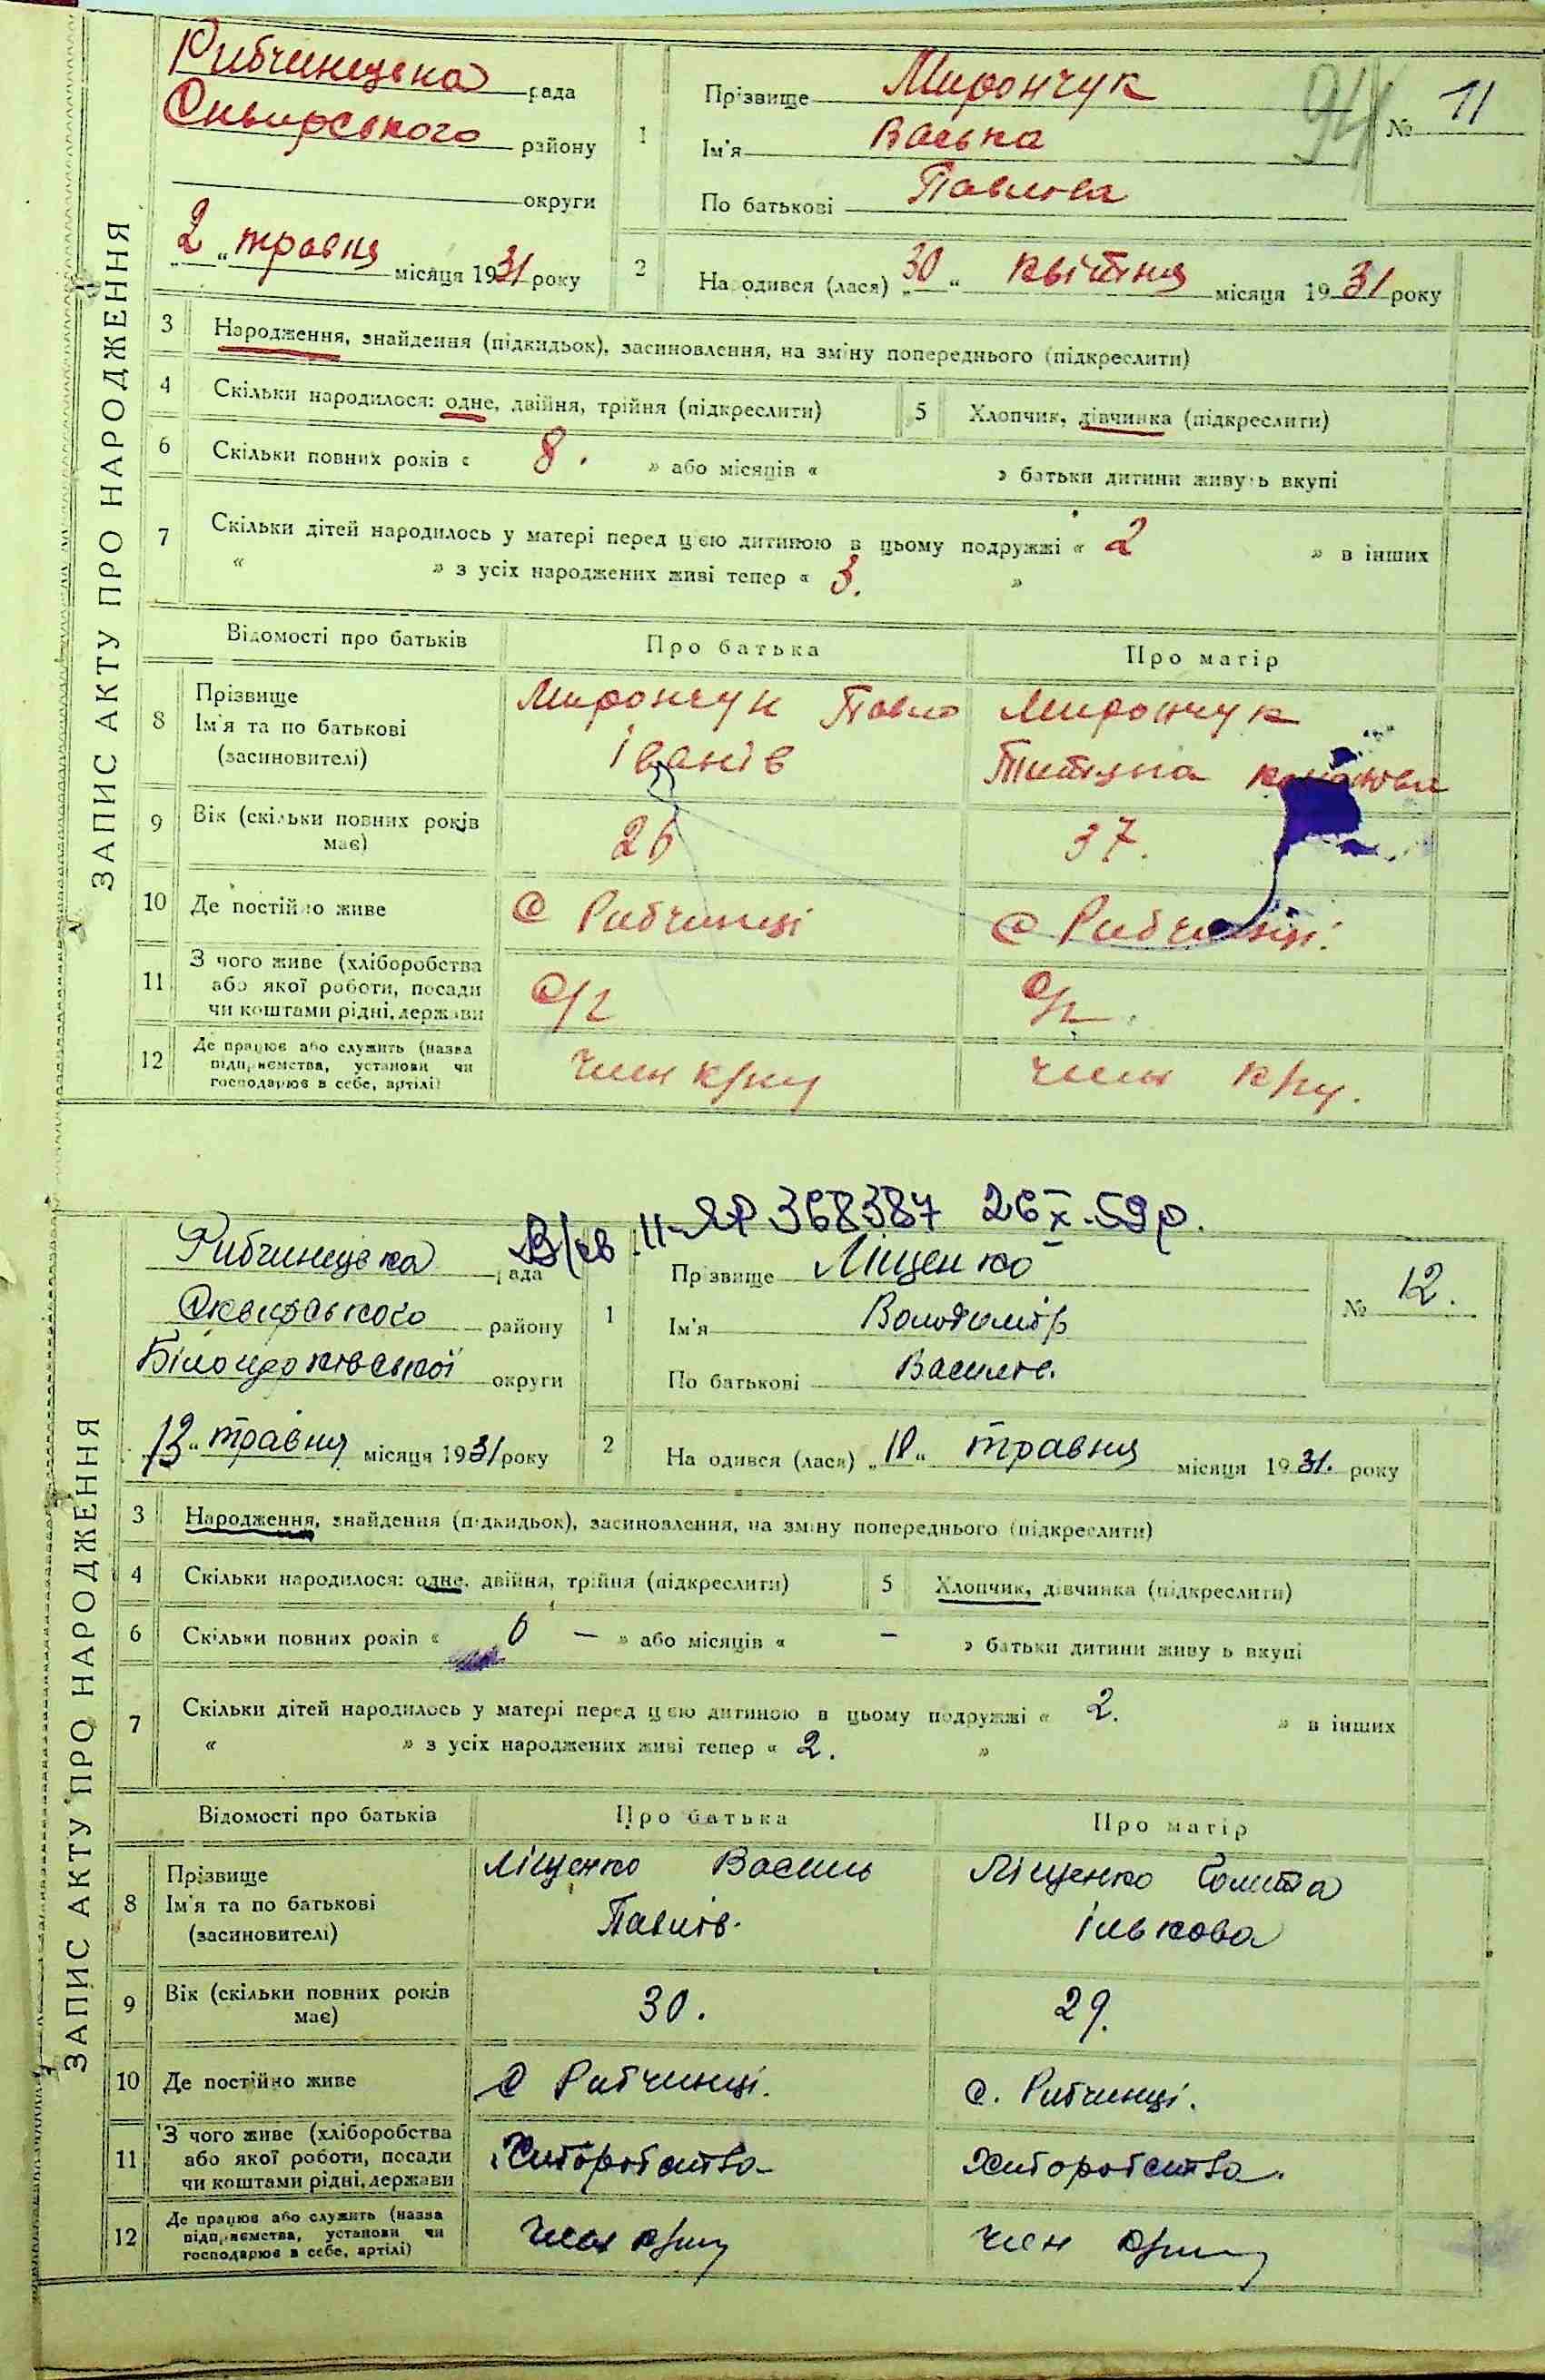 ЗАПИС АКТУ ПРО НАРОДЖЕННЯ
Рибчинецька рада
Сквирського району
округи
„2“ травня місяця 1931 року
1
Прізвище Мирончук
Ім'я Васька
По батькові Павлова
94
№ 11
2
Народився (лася) „30“ квітня місяця 1931 року
3 Народження, знайдення (підкидьок), засиновлення, на зміну попереднього (підкреслити)
4 Скільки народилося: одне, двійня, трійня (підкреслити)
5 Хлопчик, дівчинка (підкреслити)
6 Скільки повних років « 8. » або місяців « » батьки дитини живуть вкупі
7 Скільки дітей народилось у матері перед цією дитиною в цьому подружжі « 2 » в інших
« » з усіх народжених живі тепер « 3. »
Відомості про батьків Про батька Про матір
8 Прізвище
Ім'я та по батькові
(засиновителі)
Мирончук Павло
Іванів
Мирончук
Титяна
9 Вік (скільки повних років
має)
26
37.
10 Де постійно живе
с Рибчинці
с Рибчинці.
11 З чого живе (хліборобства
або якої роботи, посади
чи коштами рідні, держави
с/г
с/г.
12 Де працює або служить (назва
підприємства, установи чи
господарює в себе, артілі)
член к/сп
член к/сп.
В/св II-ЯР 368387 26 X. 59 р.
ЗАПИС АКТУ ПРО НАРОДЖЕННЯ
Рибчинецька рада
Сквирського району
Білоцерківської округи
„13“ травня місяця 1931 року
1
Прізвище Ліщенко
Ім'я Володимір
По батькові Василів.
№ 12.
2
Народився (лася) „10“ травня місяця 1931. року
3 Народження, знайдення (підкидьок), засиновлення, на зміну попереднього (підкреслити)
4 Скільки народилося: одне, двійня, трійня (підкреслити)
5 Хлопчик, дівчинка (підкреслити)
6 Скільки повних років « 6 — » або місяців « — » батьки дитини живуть вкупі
7 Скільки дітей народилось у матері перед цією дитиною в цьому подружжі « 2. » в інших
« » з усіх народжених живі тепер « 2. »
Відомості про батьків Про батька Про матір
8 Прізвище
Ім'я та по батькові
(засиновителі)
Ліщенко Василь
Павлів.
Ліщенко
Ількова
9 Вік (скільки повних років
має)
30.
29.
10 Де постійно живе
с Рибчинці.
с. Рибчинці.
11 З чого живе (хліборобства
або якої роботи, посади
чи коштами рідні, держави
Хліборобства
Хліборобства.
12 Де працює або служить (назва
підприємства, установи чи
господарює в себе, артілі)
член к/сп
член к/сп